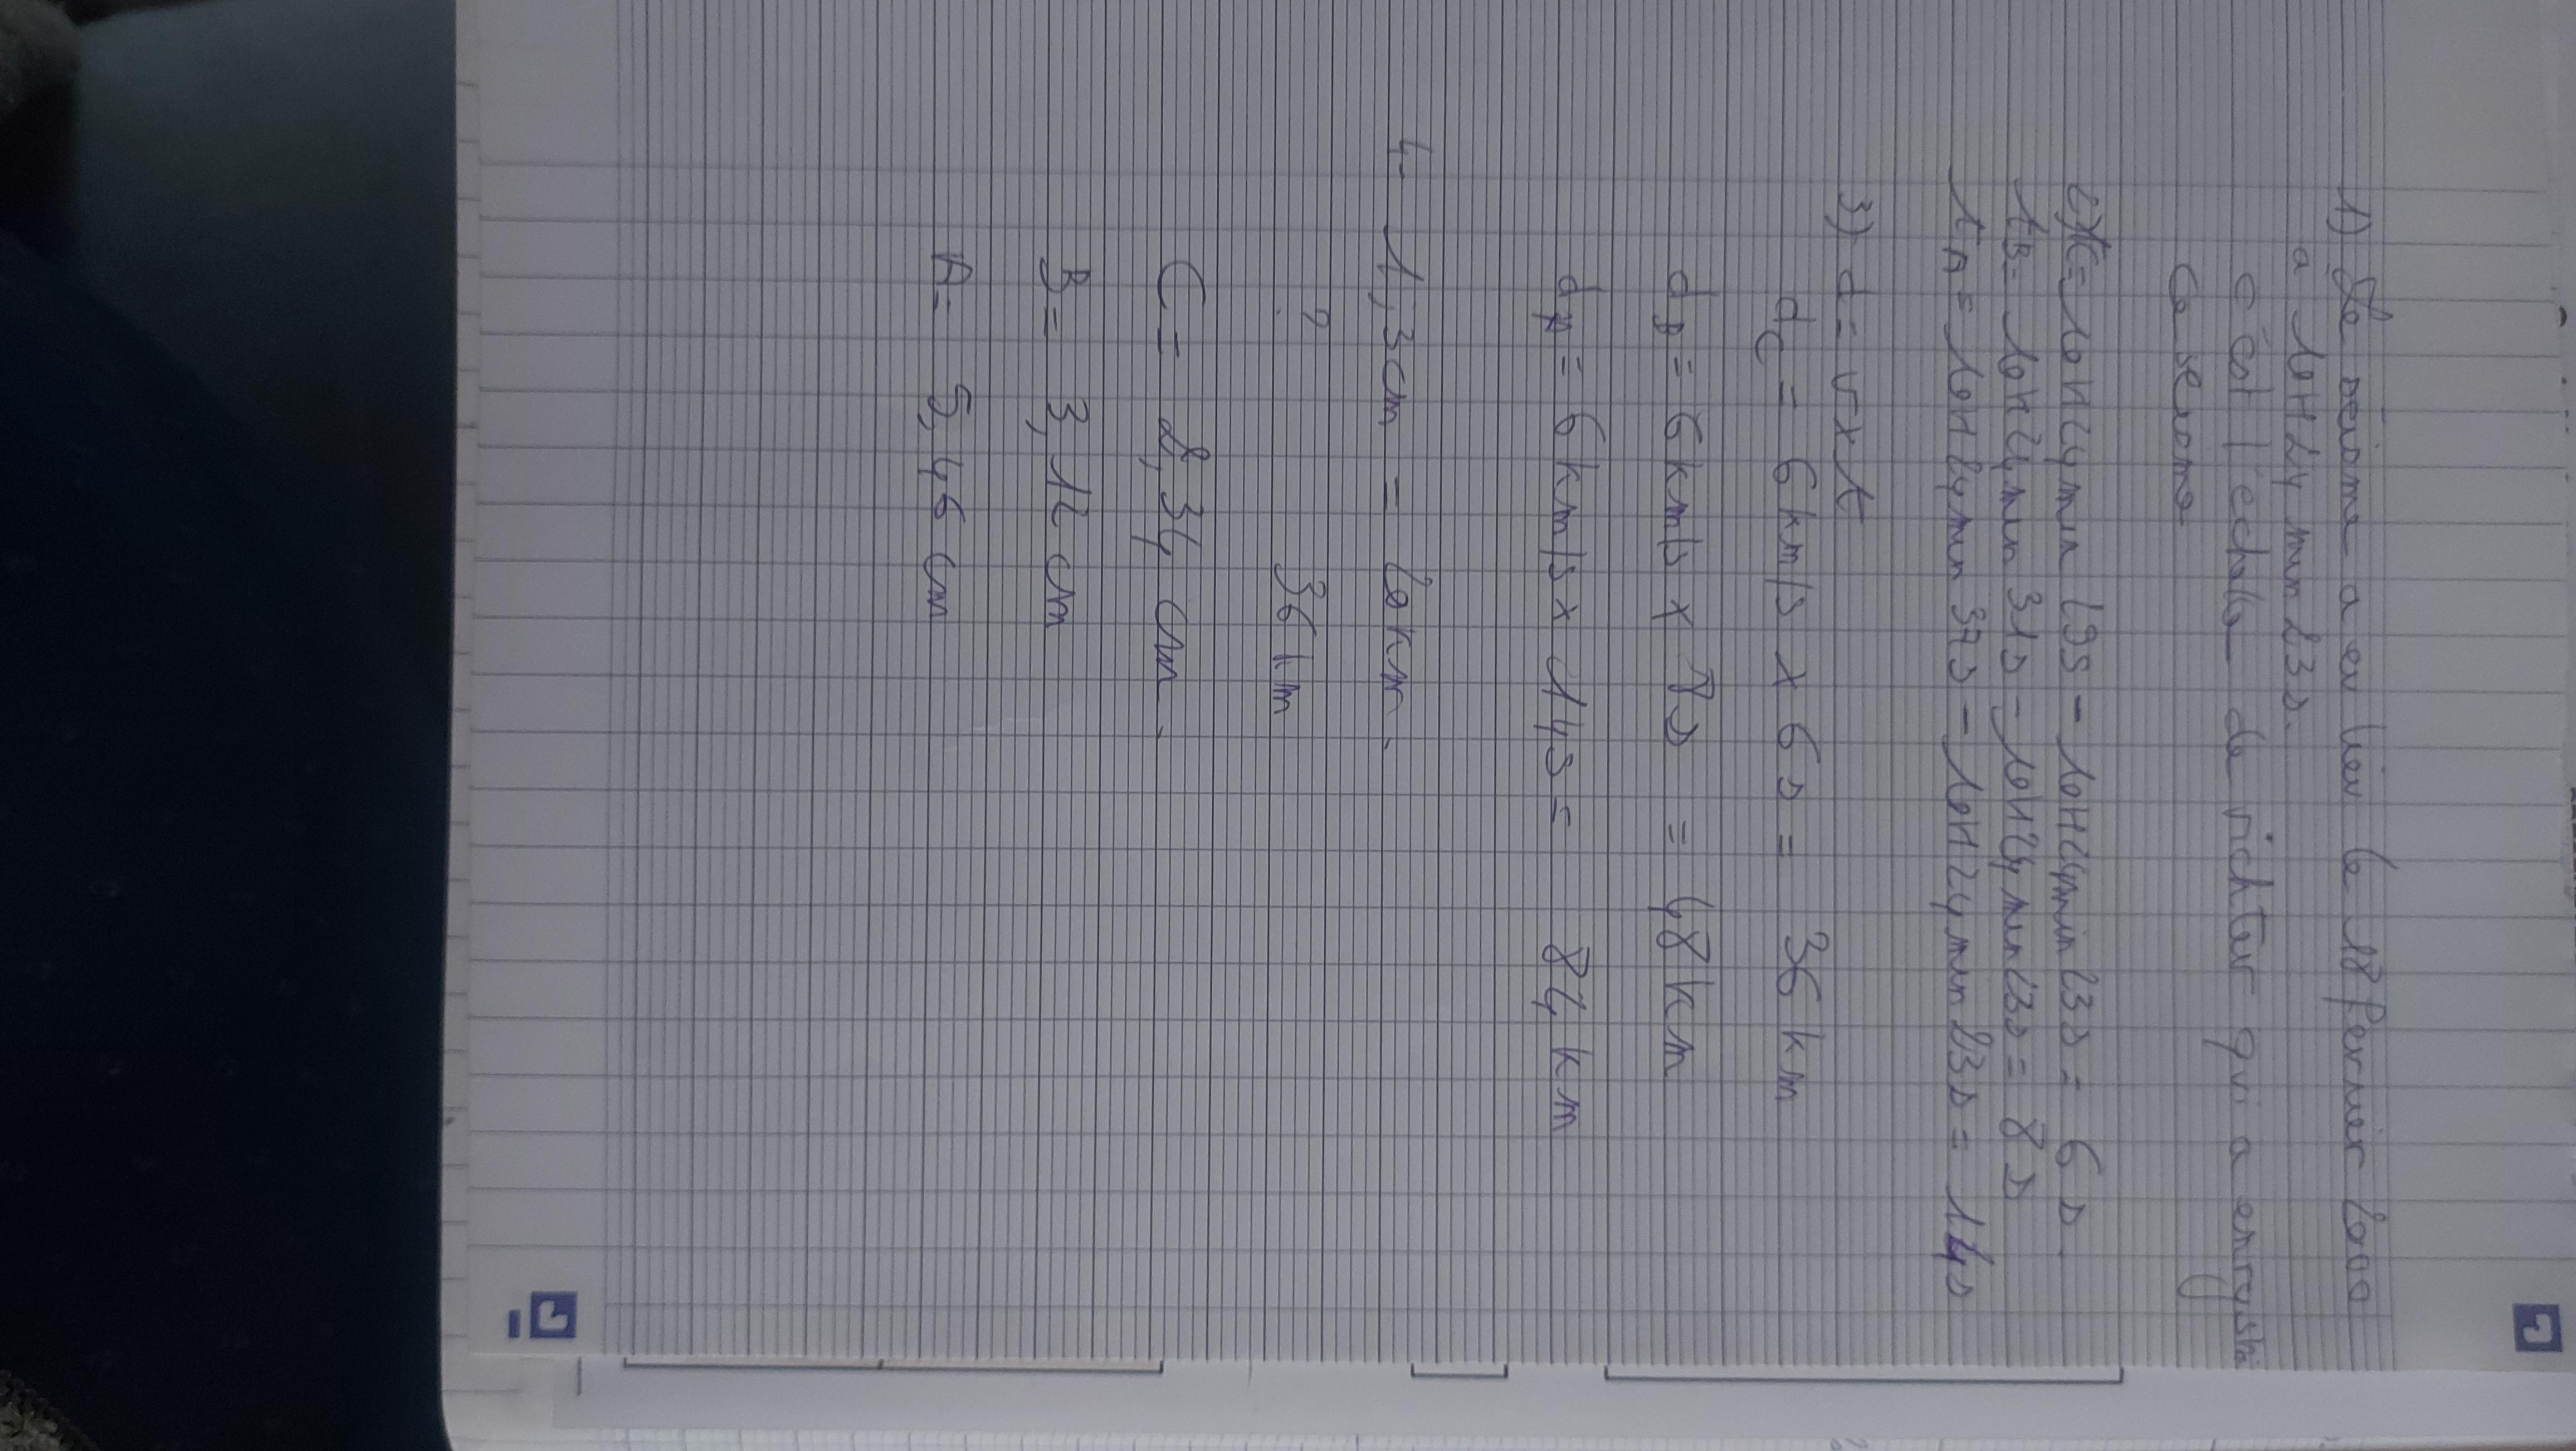 1) Le séisme a eu lieu le 18 fervrier 2000
a 10H24 min 23s.
C'est l'echelle de richter qui a enregistré
Ce seisme
2) tC = 10H24min 29s - 10H24min 23s = 6s.
tB = 10H24min 31s - 10H24min 23s = 8s
tA = 10H24min 37s - 10H24min 23s = 14s
3) d = v x t
dC = 6km/s x 6s = 36 km
dB = 6km/s x 8s = 48km
dA = 6km/s x 14s = 84 km
4- 1,3cm = 20km.
? 36km
C = 2,34 cm.
B = 3,12 cm
A = 5,46 cm